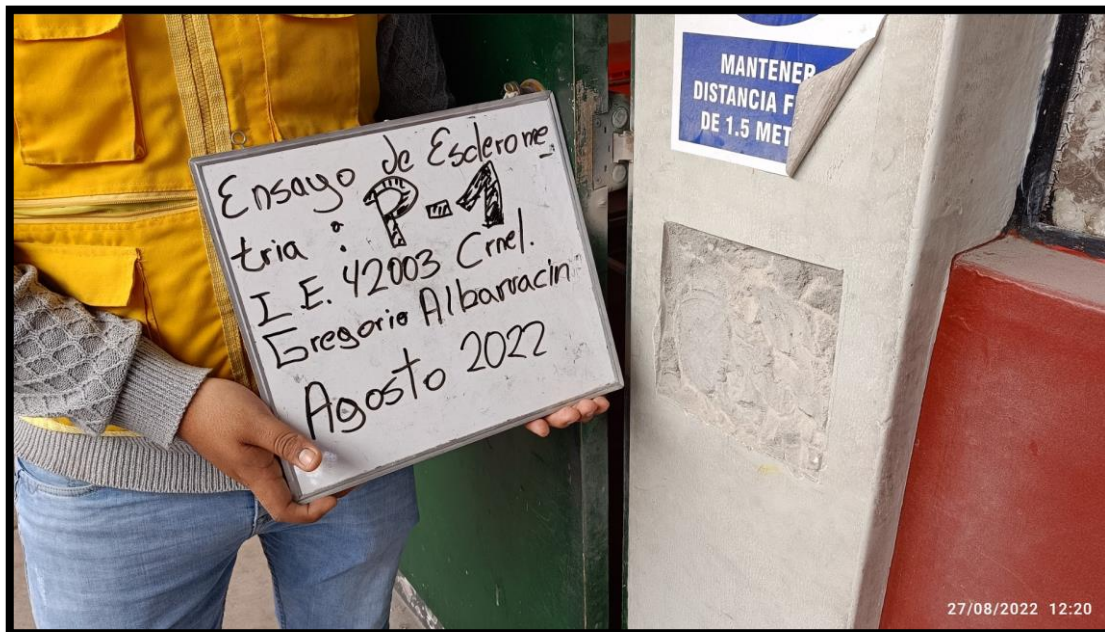 Ensayo de Esclerome
tria : P-1
I. E. 42003 Crnel.
Gregorio Albarracin
Agosto 2022
MANTENER
DISTANCIA F
DE 1.5 MET
27/08/2022 12:20